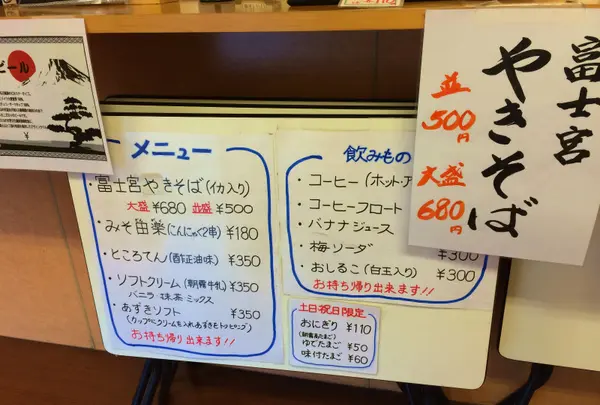 ビール
メニュー
・富士宮やきそば(イカ入り)
大盛¥680 並盛¥500
・みそ田楽(こんにゃく2串) ¥180
・ところてん(酢正油味) ¥350
・ソフトクリーム(朝霧牛乳) ¥350
バニラ・抹茶・ミックス
・あずきソフト ¥350
(カップにクリームを入れあずきをトッピング)
お持ち帰り出来ます!!
飲みもの
・コーヒー(ホット・ア
・コーヒーフロート
・バナナジュース
・梅ソーダ ¥300
・おしるこ(白玉入り) ¥300
お持ち帰り出来ます!!
土日祝日限定
おにぎり ¥110
(朝霧高たまご)
ゆでたまご ¥50
味付たまご ¥60
富士宮
やきそば
並
500円
大盛
680円